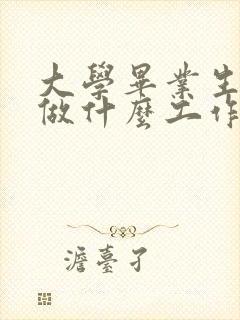 大學畢業生
做什麼工作
澹臺子